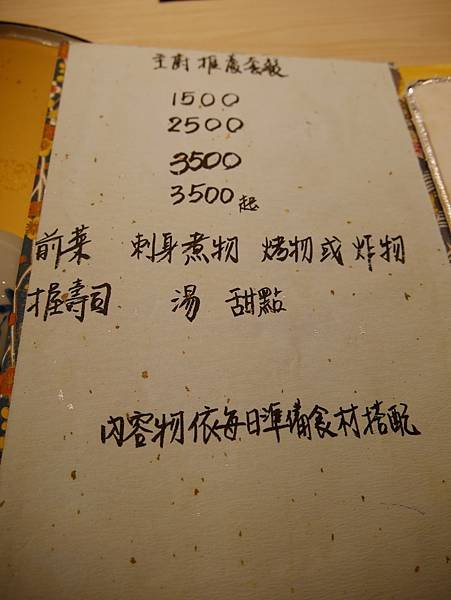 主廚推薦套餐
1500
2500
3500
3500起
前菜 刺身煮物 烤物或炸物
握壽司 湯 甜點
內容物依每日準備食材搭配